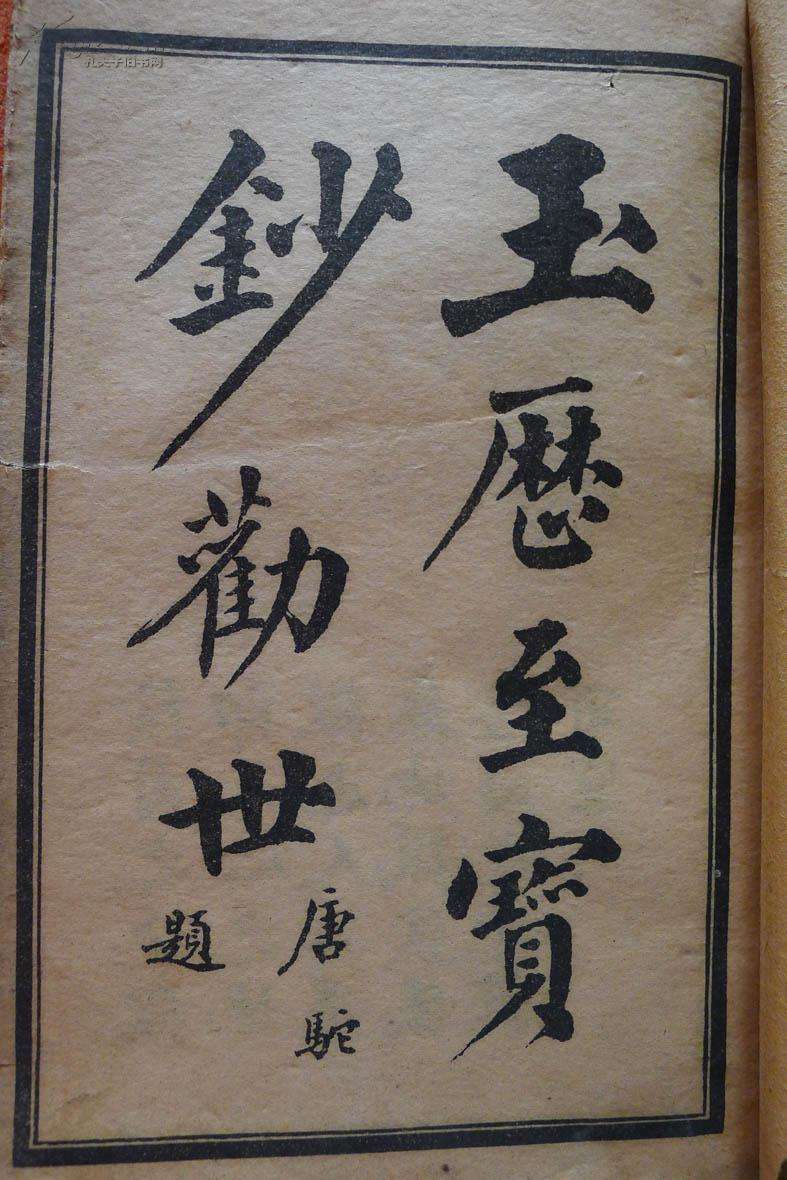 玉歷至寶
鈔勸世
唐駝
題
孔夫子旧书网